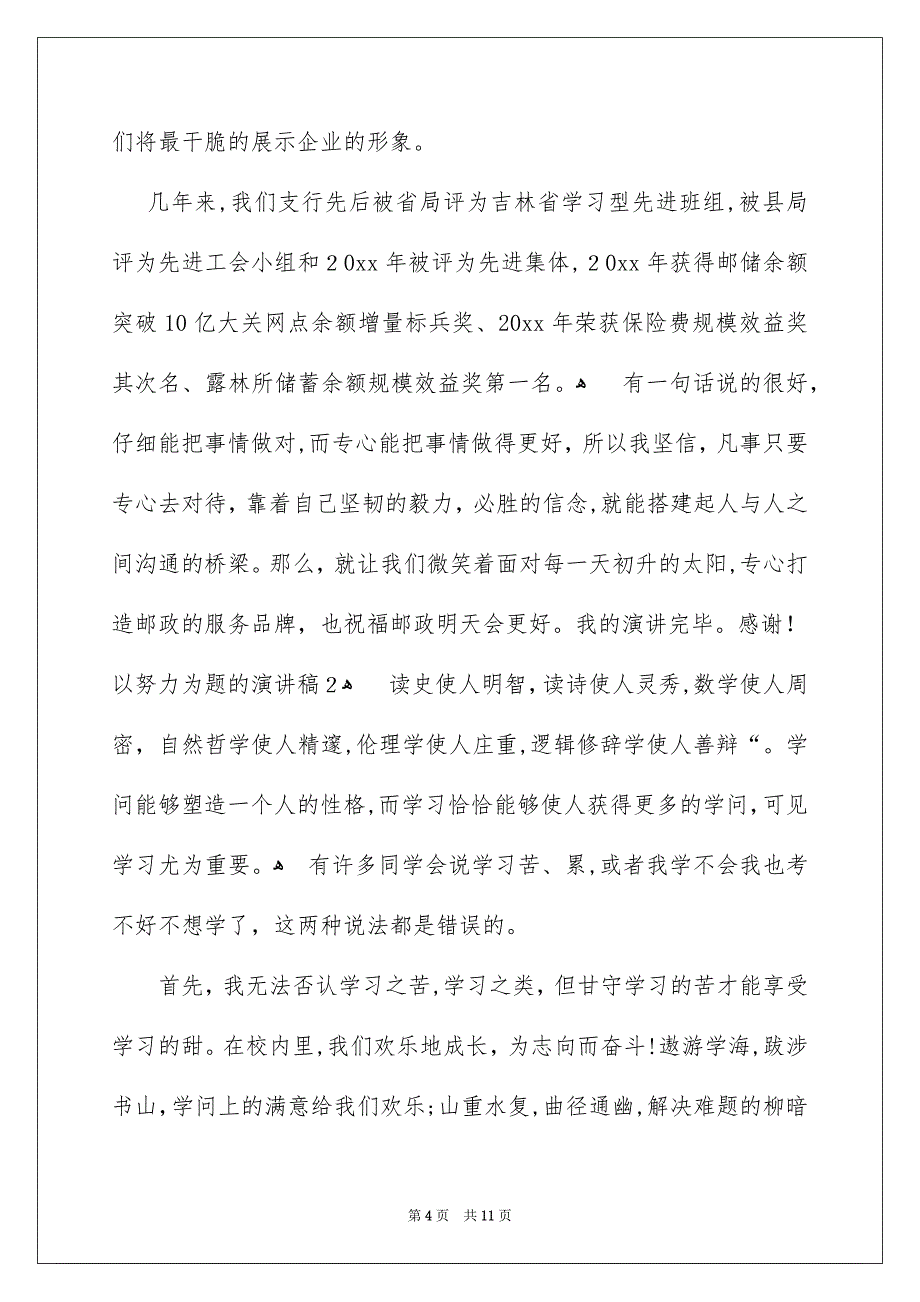 们将最干脆的展示企业的形象。
几年来,我们支行先后被省局评为吉林省学习型先进班组,被县局
评为先进工会小组和２0xx 年被评为先进集体,２0xx 年获得邮储余额
突破 10 亿大关网点余额增量标兵奖、20xx 年荣获保险费规模效益奖
其次名、露林所储蓄余额规模效益奖第一名。ﻫ 有一句话说的很好,
仔细能把事情做对,而专心能把事情做得更好，所以我坚信，凡事只要
专心去对待，靠着自己坚韧的毅力，必胜的信念,就能搭建起人与人之
间沟通的桥梁。那么，就让我们微笑着面对每一天初升的太阳,专心打
造邮政的服务品牌，也祝福邮政明天会更好。我的演讲完毕。感谢！
以努力为题的演讲稿２ﻫ 读史使人明智，读诗使人灵秀,数学使人周
密，自然哲学使人精邃,伦理学使人庄重,逻辑修辞学使人善辩“。学
问能够塑造一个人的性格,而学习恰恰能够使人获得更多的学问，可见
学习尤为重要。ﻫ 有许多同学会说学习苦、累,或者我学不会我也考
不好不想学了，这两种说法都是错误的。
首先，我无法否认学习之苦,学习之类，但甘守学习的苦才能享受
学习的甜。在校内里,我们欢乐地成长，为志向而奋斗!遨游学海,跋涉
书山，学问上的满意给我们欢乐;山重水复,曲径通幽,解决难题的柳暗
第 4 页 共 11 页